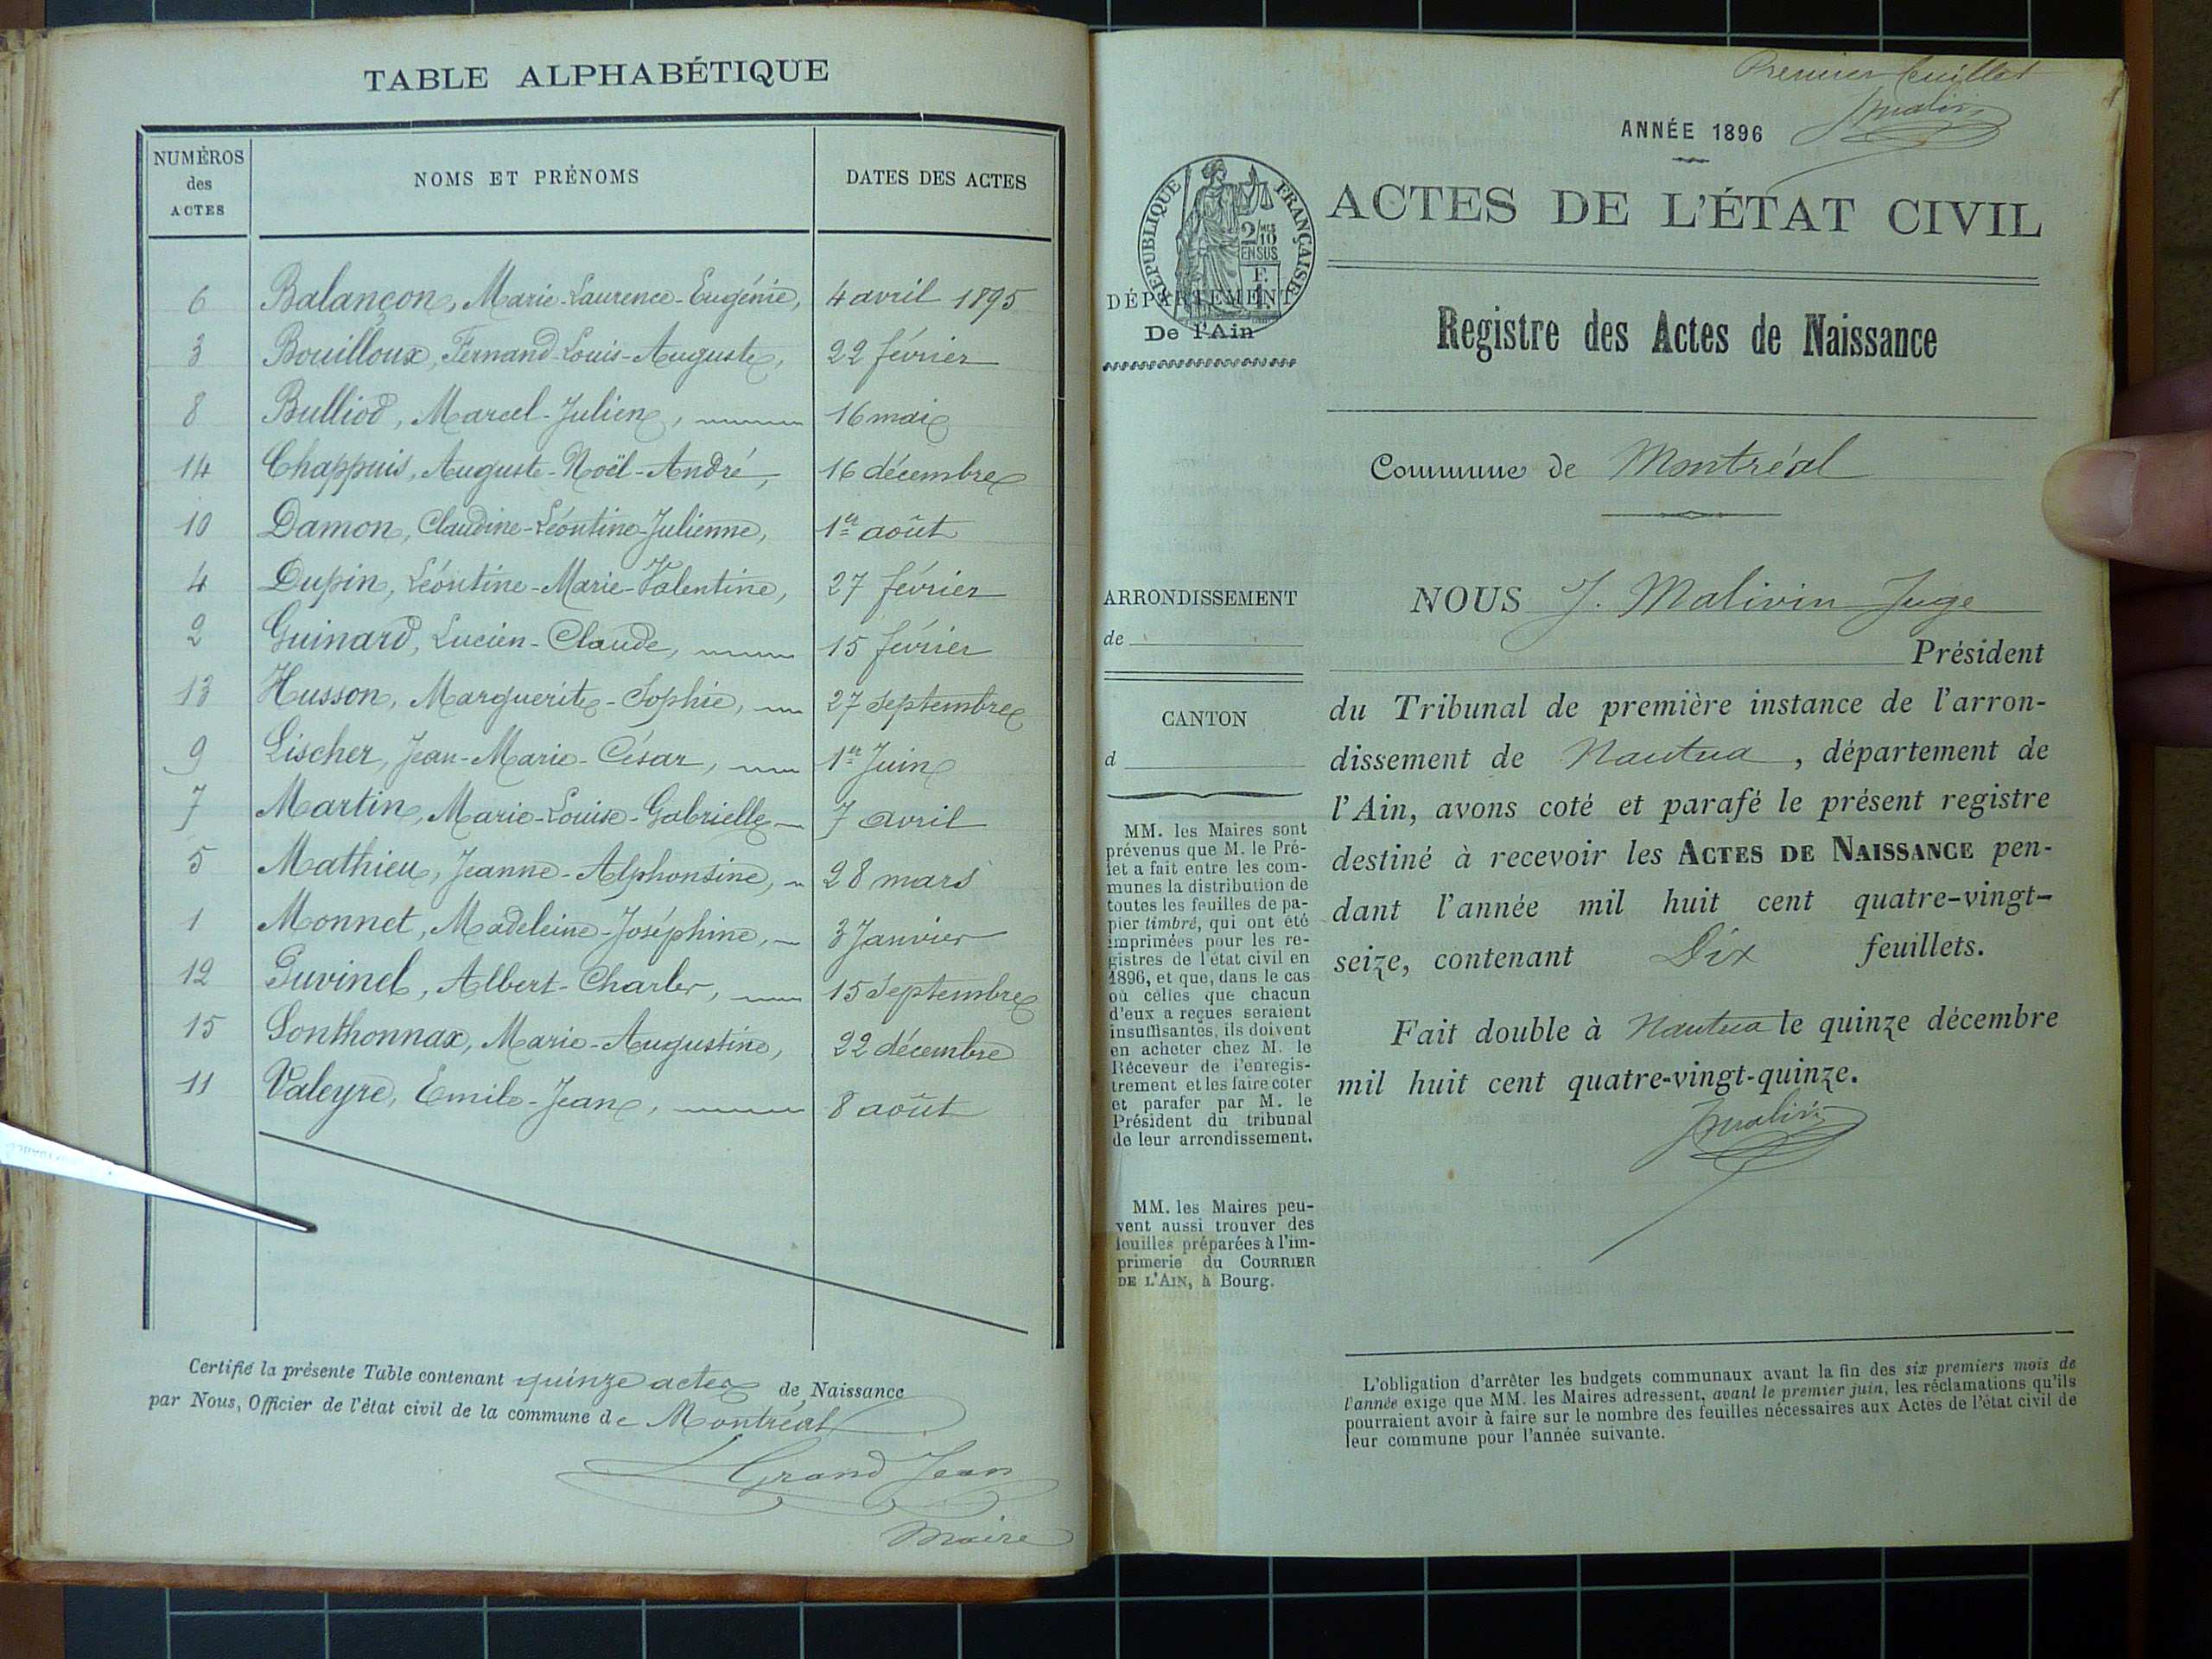 TABLE ALPHABÉTIQUE
NUMÉROS des ACTES NOMS ET PRÉNOMS DATES DES ACTES
6 Balançon, Marie-Laurence-Eugénie, 4 avril 1895
3 Bouilloux, Fernand-Louis-Auguste, 22 février
8 Bulliod, Marcel-Julien, 16 mai
14 Chappuis, Auguste-Noël-André, 16 décembre
10 Damon, Claudine-Léontine-Julienne, 1er août
4 Dupin, Léontine-Marie-Valentine, 27 février
2 Guinard, Lucien-Claude, 15 février
13 Husson, Marguerite-Sophie, 27 Septembre
9 Lischer, Jean-Marie-César, 1er Juin
7 Martin, Marie-Louise-Gabrielle 7 avril
5 Mathieu, Jeanne-Alphonsine, 28 mars
1 Monnet, Madeleine-Joséphine, 3 Janvier
12 Puvinel, Albert-Charles, 15 Septembre
15 Sonthonnax, Marie-Augustine, 22 décembre
11 Valeyre, Emile-Jean, 8 août
Certifié la présente Table contenant quinze actes de Naissance
par Nous, Officier de l'état civil de la commune de Montréal
Grand Jean
Maire
Premier feuillet
JMalivin
ANNÉE 1896
RÉPUBLIQUE FRANÇAISE
2/10 MES
EN SUS
1 F.
ACTES DE L'ÉTAT CIVIL
DÉPARTEMENT
De l'Ain
Registre des Actes de Naissance
Commune de Montréal
ARRONDISSEMENT
de
CANTON
d
MM. les Maires sont
prévenus que M. le Pré-
fet a fait entre les com-
munes la distribution de
toutes les feuilles de pa-
pier timbré, qui ont été
imprimées pour les re-
gistres de l'état civil en
1896, et que, dans le cas
où celles que chacun
d'eux a reçues seraient
insuffisantes, ils doivent
en acheter chez M. le
Receveur de l'enregis-
trement et les faire coter
et parafer par M. le
Président du tribunal
de leur arrondissement.
MM. les Maires peu-
vent aussi trouver des
feuilles préparées à l'im-
primerie du COURRIER
DE L'AIN, à Bourg.
NOUS J. Malivin Juge
Président
du Tribunal de première instance de l'arron-
dissement de Nantua, département de
l'Ain, avons coté et parafé le présent registre
destiné à recevoir les ACTES DE NAISSANCE pen-
dant l'année mil huit cent quatre-vingt-
seize, contenant Dix feuillets.
Fait double à Nantua le quinze décembre
mil huit cent quatre-vingt-quinze.
JMalivin
L'obligation d'arrêter les budgets communaux avant la fin des six premiers mois de
l'année exige que MM. les Maires adressent, avant le premier juin, les réclamations qu'ils
pourraient avoir à faire sur le nombre des feuilles nécessaires aux Actes de l'état civil de
leur commune pour l'année suivante.